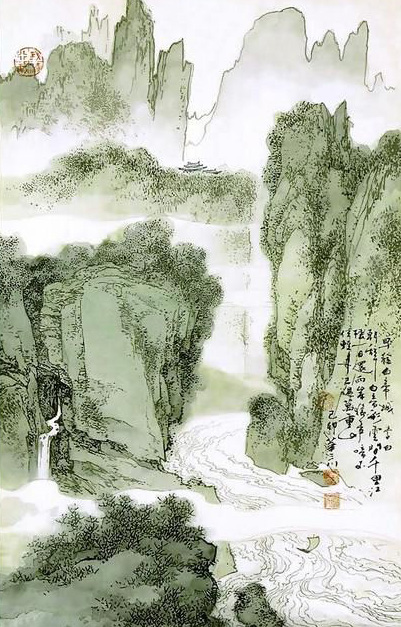 早發白帝城 李白
朝辭白帝彩雲間千里江
陵一日還兩岸猿聲啼不
住輕舟已過萬重山
己卯